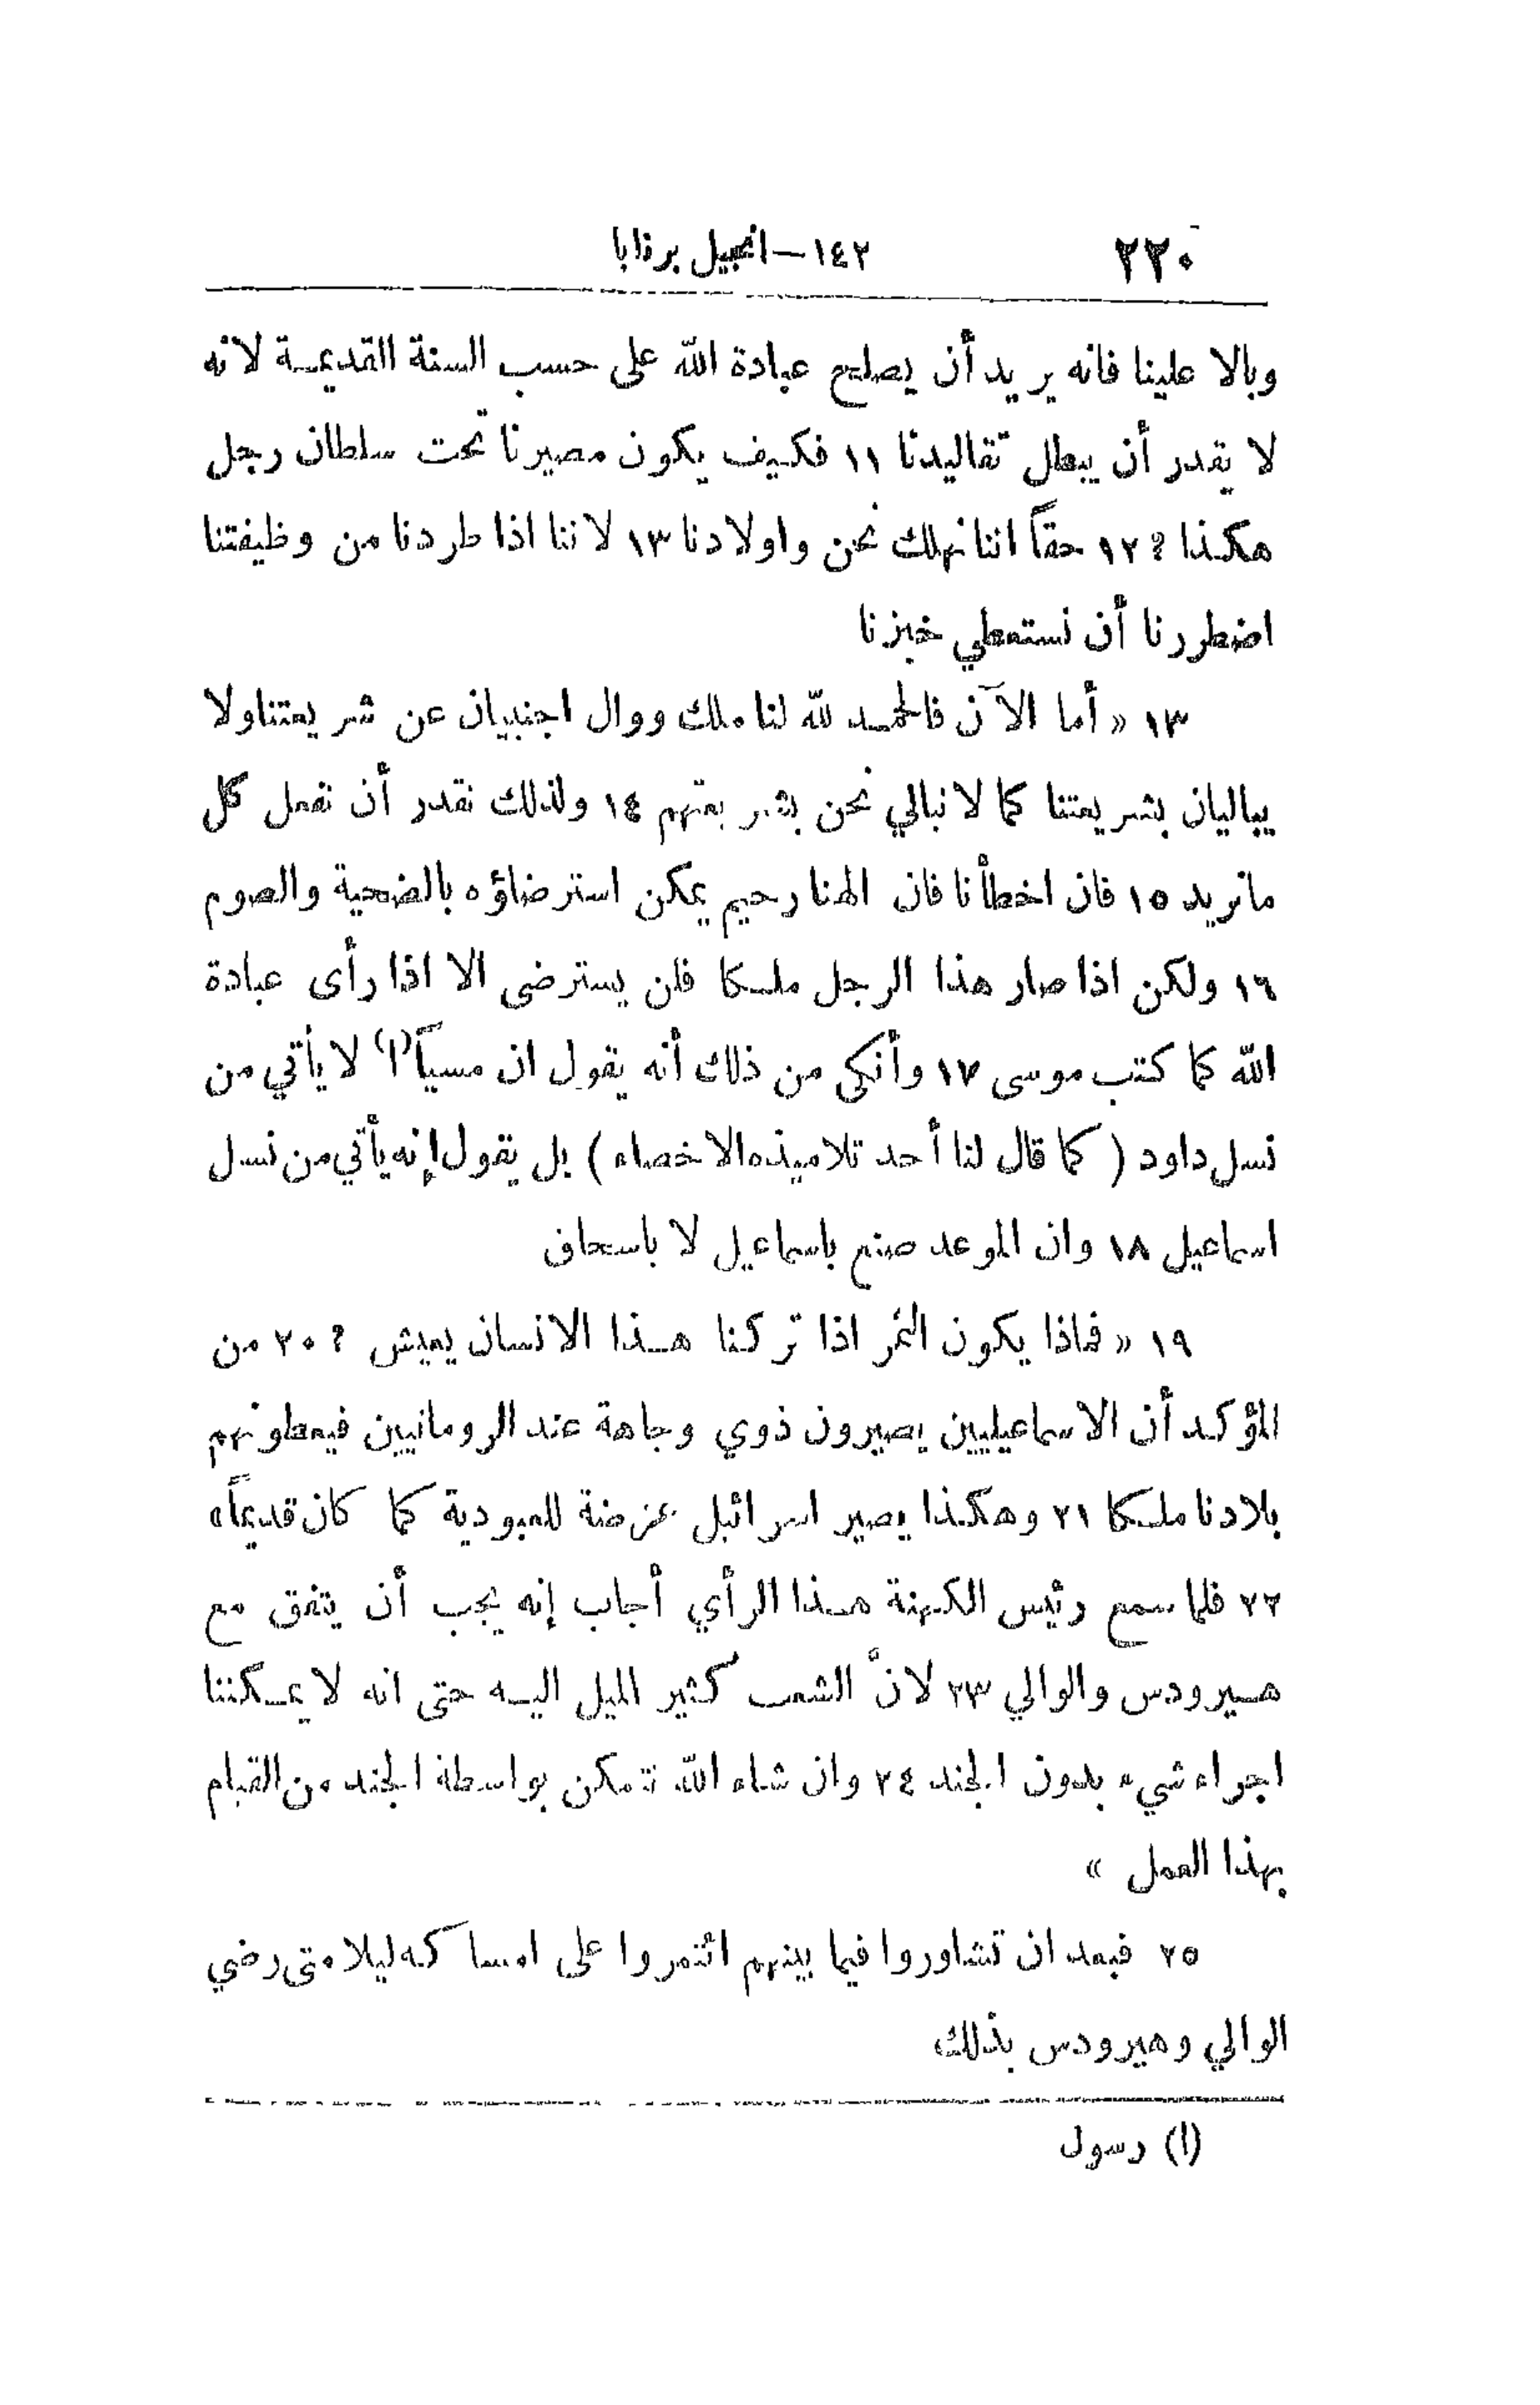 ٢٢٠ ١٤٢ — انجيل برنابا
وبالا علينا فانه يريد أن يصلح عبادة الله على حسب السنة القديمـة لانه
لا يقدر أن يبطل تقاليدنا ١١ فكيف يكون مصيرنا تحت سلطان رجل
هكذا ؟ ١٢ حقاً اننا نهلك نحن واولادنا ١٣ لاننا اذا طردنا من وظيفتنا
اضطررنا أن نستعطي خبزنا
١٣ « أما الآن فالحمـد لله لنا ملك ووال اجنبيان عن شريعتنا ولا
يباليان بشريعتنا كما لا نبالي نحن بشريعتهم ١٤ ولذلك نقدر أن نفعل كل
ما نريد ١٥ فان اخطأنا فان الهنا رحيم يمكن استرضاؤه بالضحية والصوم
١٦ ولكن اذا صار هذا الرجل ملـكا فلن يسترضى الا اذا رأى عبادة
الله كما كتب موسى ١٧ وأنكى من ذلك أنه يقول ان مسيأ(١) لا يأتي من
نسل داود ( كما قال لنا أحد تلاميذه الاخصاء ) بل يقول إنه يأتي من نسل
اسماعيل ١٨ وان الموعد صنع باسماعيل لا باسحاق
١٩ « فماذا يكون الثمر اذا تركنا هـذا الانسان يعيش ؟ ٢٠ من
المؤكـد أن الاسماعيليين يصيرون ذوي وجاهة عند الرومانيين فيعطونهم
بلادنا ملـكا ٢١ وهكـذا يصير اسرائيل عرضة للعبودية كما كان قديماً »
٢٢ فلما سمع رئيس الكهنة هـذا الرأي أجاب إنه يجب أن يتفق مع
هـيرودس والوالي ٢٣ لانّ الشعب كثير الميل اليـه حتى انه لا يمـكننا
اجراء شيء بدون الجند ٢٤ وان شاء الله نتمكن بواسطة الجند من القيام
بهذا العمل »
٢٥ فبعد ان تشاوروا فيما بينهم ائتمروا على امساكه ليلا متى رضي
الوالي وهيرودس بذلك
(١) رسول